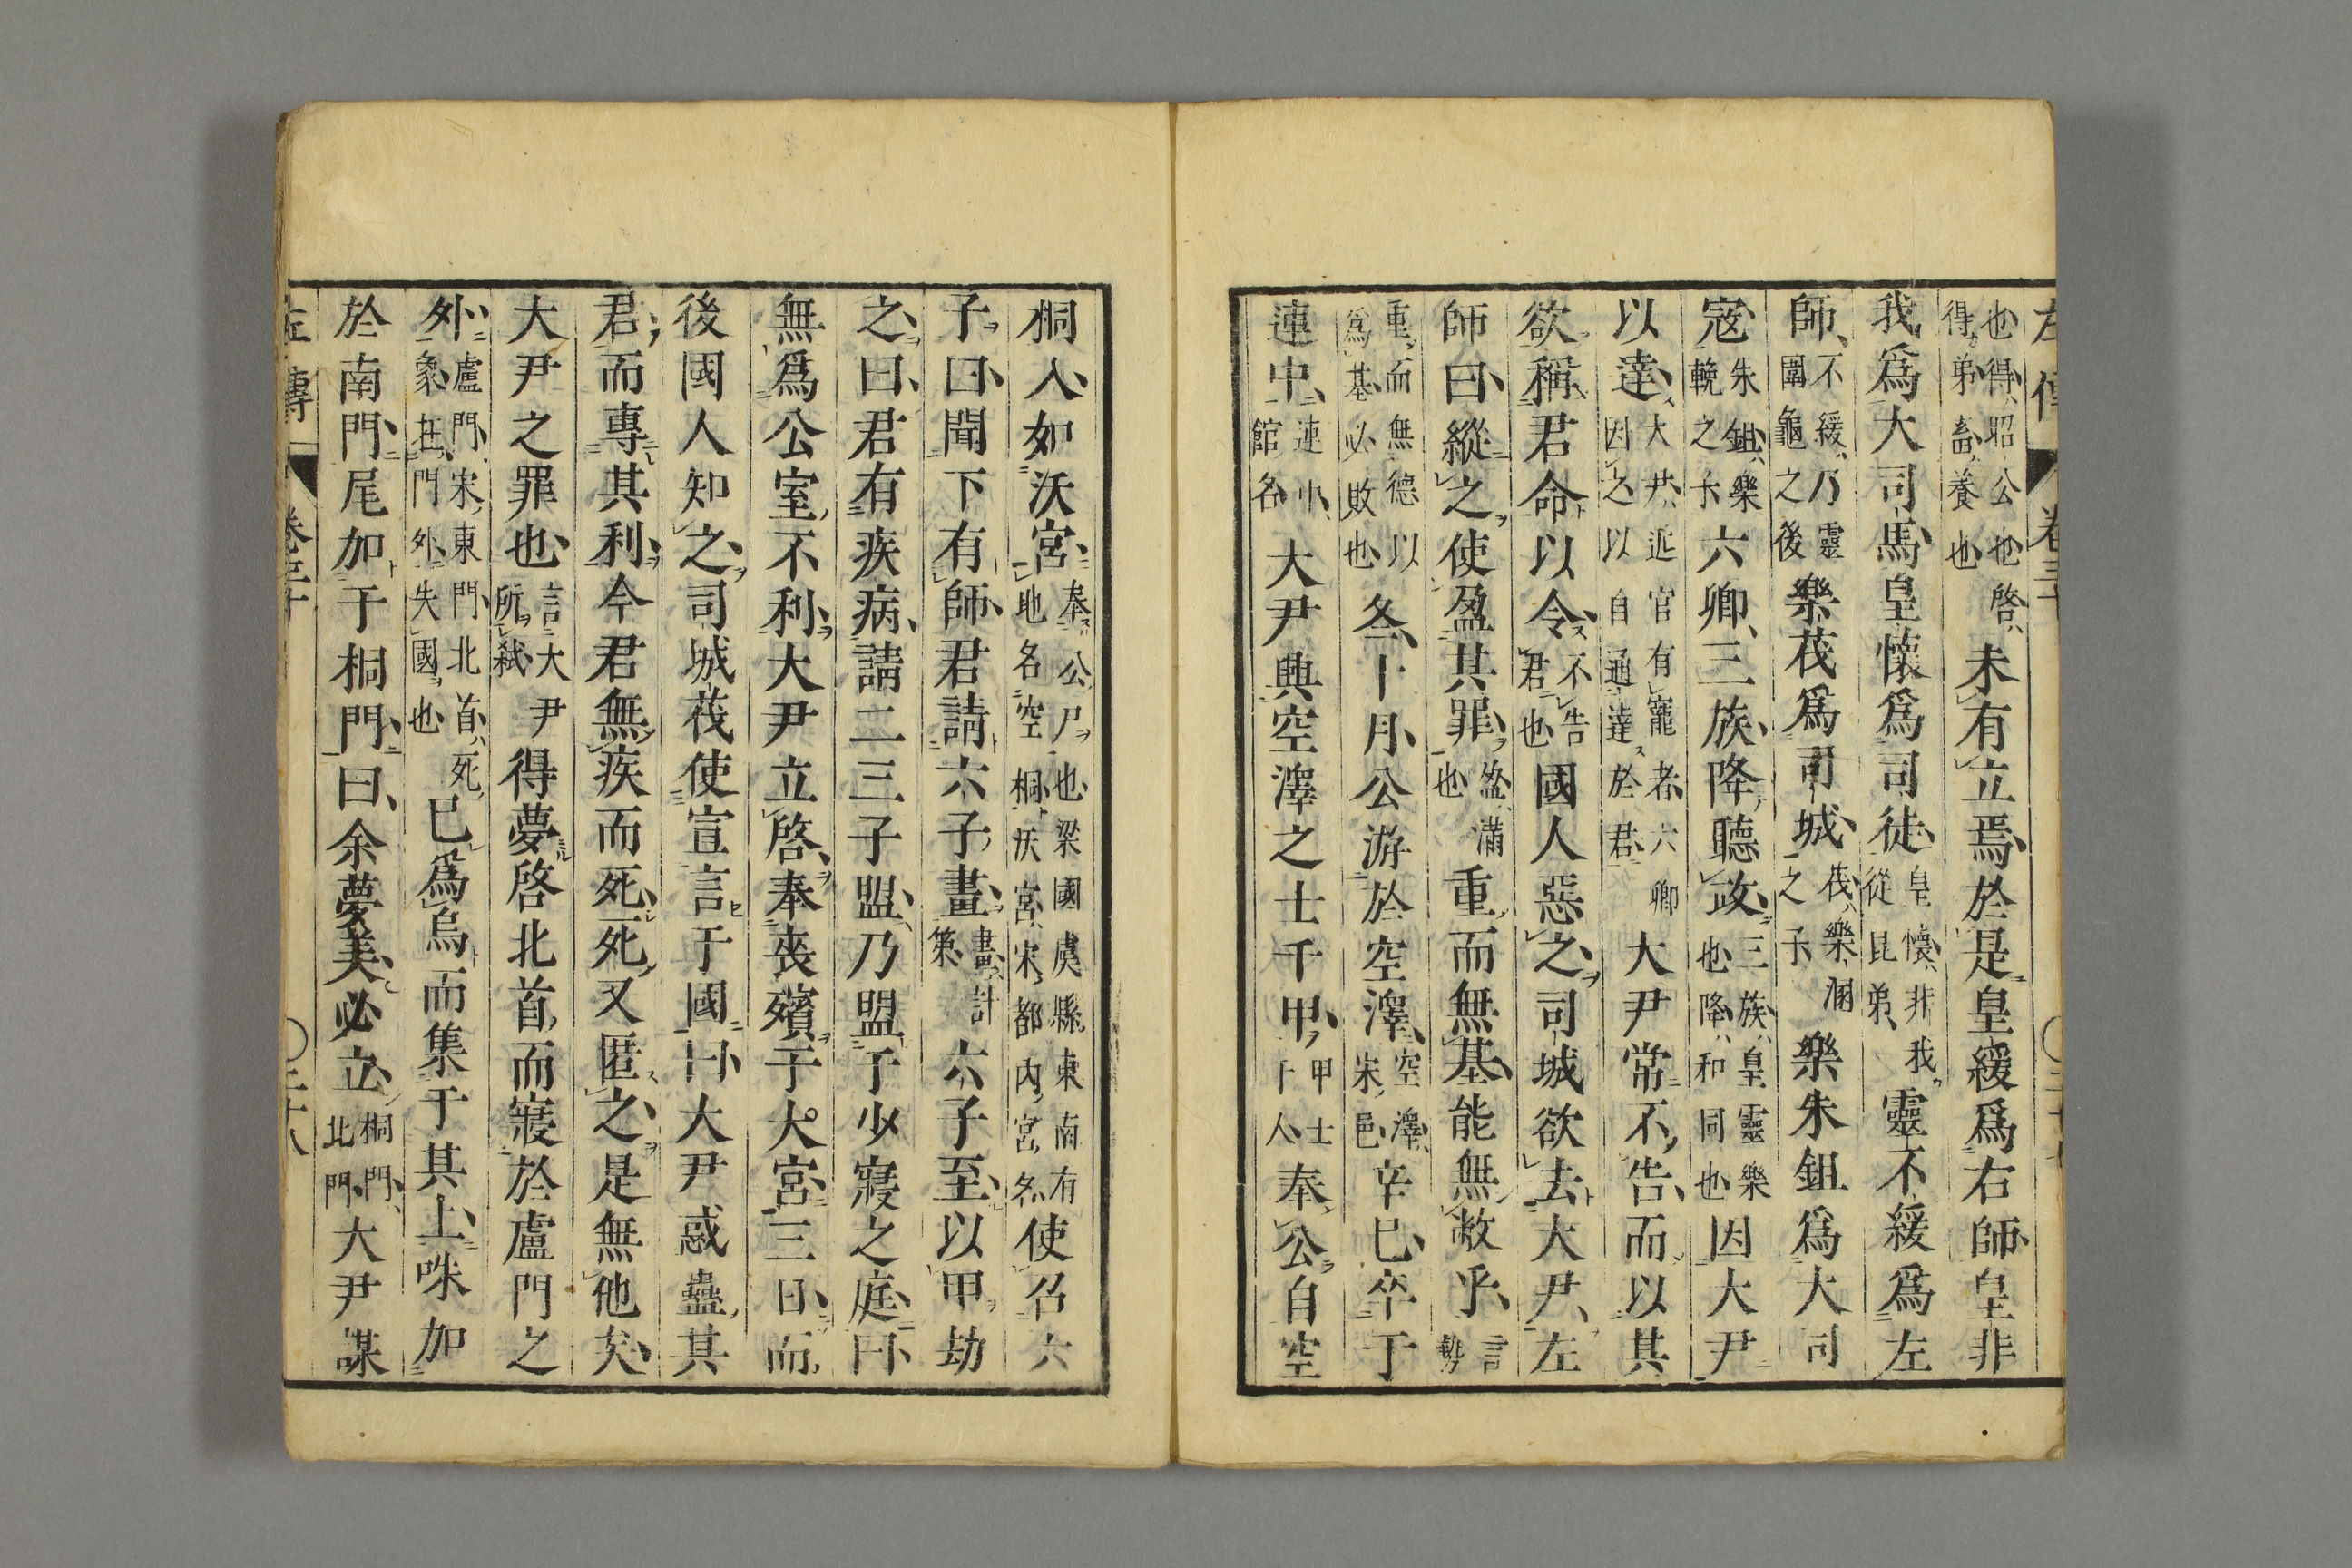 也得昭公也啓得弟畜養也未有立焉於是皇緩爲右師皇非
我爲大司馬皇懷爲司徒皇懷非我從昆弟靈不緩爲左
師不緩乃靈圍龜之後樂茷爲司城茷樂溷之子樂朱鉏爲大司
寇朱鉏樂輓之子六卿三族降聽政三族皇靈樂也降和同也因大尹
以達大尹近官有寵者六卿因之以自通達於君大尹常不告而以其
欲稱君命以令不告君也國人惡之司城欲去大尹左
師曰縱之使盈其罪盈滿也重而無基能無敝乎言勢
重而無德以爲基必敗也冬十月公游於空澤空澤宋邑辛巳卒于
連中連中館名大尹興空澤之士千甲甲士千人奉公自空
桐入如沃宮奉公尸也梁國虞縣東南有地名空桐沃宮宋都內宮名使召六
子曰聞下有師君請六子畫畫計策六子至以甲劫
之曰君有疾病請二三子盟乃盟于少寢之庭曰
無爲公室不利大尹立啓奉喪殯于大宮三日而
後國人知之司城茷使宣言于國曰大尹惑蠱其
君而專其利今君無疾而死死又匿之是無他矣
大尹之罪也言大尹所弒得夢啓北首而寢於盧門之
外盧門宋東門北首死象在門外失國也已爲烏而集于其上咮加
於南門尾加于桐門曰余夢美必立桐門北門大尹謀
左傳 卷三十 二十八